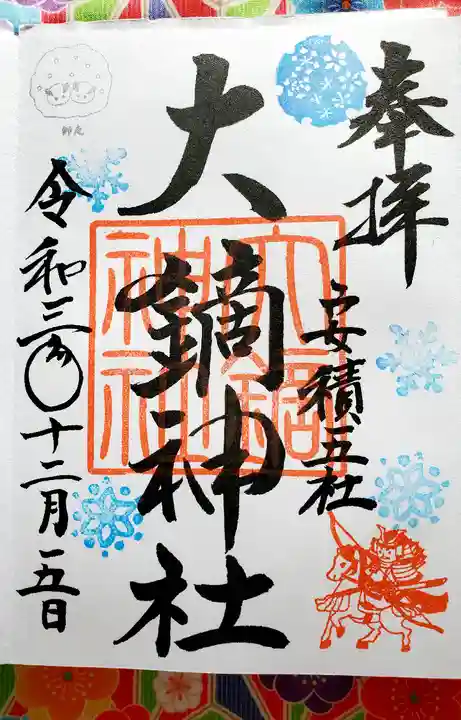 奉拝
安積五社
大鏑神社
大鏑
神社
令和三年十二月五日